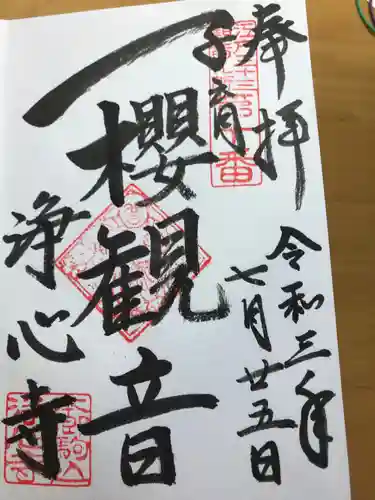 奉拝
令和三年
七月廿五日
子育
一櫻観音
浄心寺